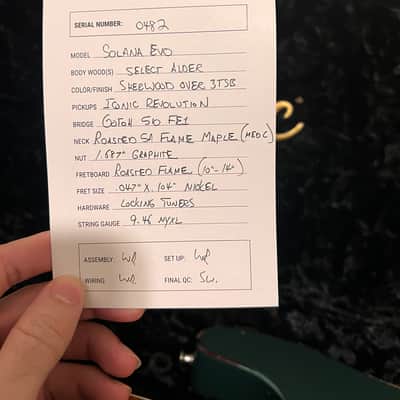 SERIAL NUMBER: 0482
MODEL SOLANA EVO
BODY WOOD(S) SELECT ALDER
COLOR/FINISH SHERWOOD OVER 3TSB
PICKUPS IONIC REVOLUTION
BRIDGE GOTOH 510 FE1
NECK ROASTED 5A FLAME MAPLE (MED C)
NUT 1.687" GRAPHITE
FRETBOARD ROASTED FLAME (10"-14")
FRET SIZE .047" X .104" NICKEL
HARDWARE LOCKING TUNERS
STRING GAUGE 9-46 NYXL
ASSEMBLY: SET UP:
WIRING FINAL QC: SW.